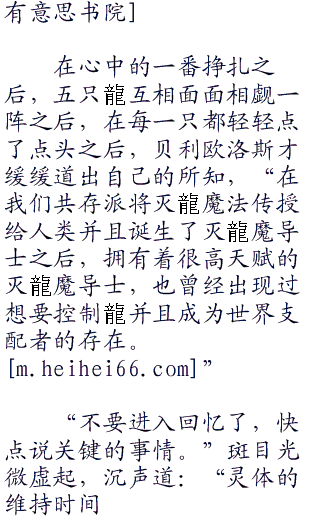 有意思书院]
在心中的一番挣扎之
后，五只龍互相面面相觑一
阵之后，在每一只都轻轻点
了点头之后，贝利欧洛斯才
缓缓道出自己的所知，“在
我们共存派将灭龍魔法传授
给人类并且诞生了灭龍魔导
士之后，拥有着很高天赋的
灭龍魔导士，也曾经出现过
想要控制龍并且成为世界支
配者的存在。
[m.heihei66.com]”
“不要进入回忆了，快
点说关键的事情。”斑目光
微虚起，沉声道：“灵体的
维持时间